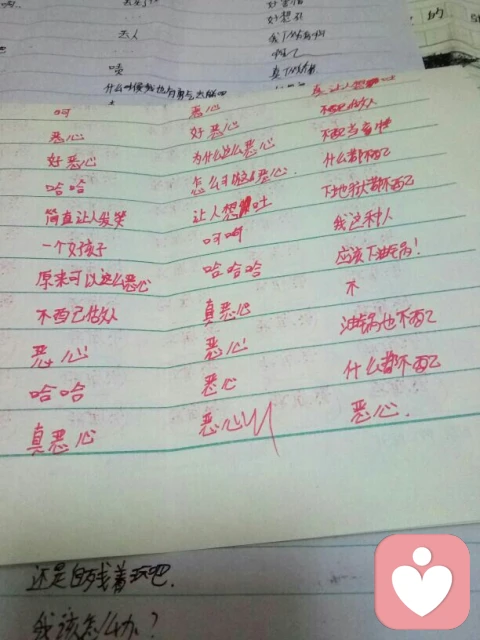 去人
唛
什么时候我也
恶心
呵
恶心
好恶心
哈哈
简直让人发笑
一个女孩子
原来可以这么恶心
不配已做人
恶心
哈哈
真恶心
恶心
好恶心
为什么这么恶心
怎么可以这么恶心.
让人想吐
呵呵
哈哈哈
真恶心
恶心
恶心
恶心
真让人想吐
不配做人
不配当
什么都不配
下地狱都不配
我这种人
应该下油锅!
不
油锅也不配
什么都不配
恶心.
还是自残着玩吧.
我该怎么办?